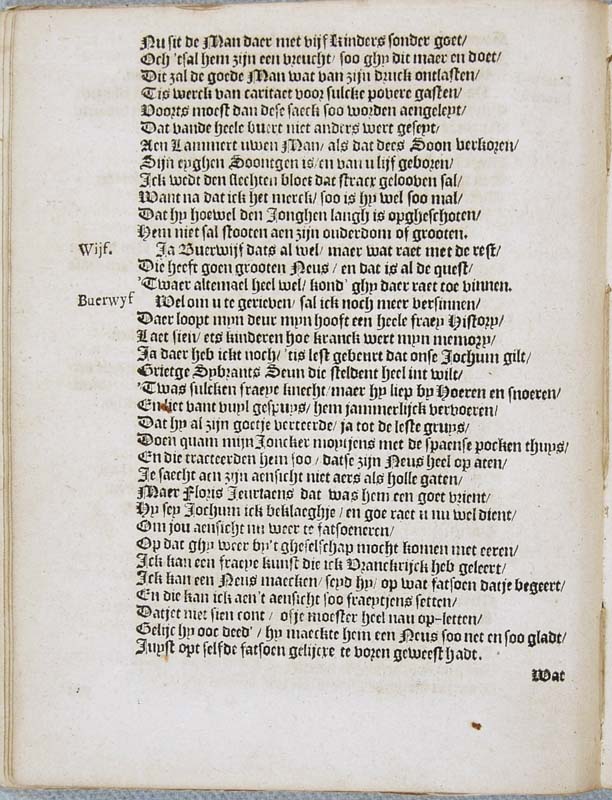 Nu sit de Man daer met vijf kinders sonder goet/
Och 'tsal hem zijn een vreucht/ soo ghy dit maer en doet/
Dit zal de goede Man wat van zijn druck ontlasten/
Tis werck van caritaet voor sulcke povere gasten/
Voorts moest dan dese saeck soo worden aengeleyt/
Dat vande heele buert niet anders wert geseyt/
Aen Lammert uwen Man/ als dat dees Soon verkoren/
Sijn eyghen Soontgen is/ en van u lijf geboren/
Ick wedt den slechten bloet dat stracx gelooven sal/
Want na dat ick het merck/ soo is hy wel soo mal/
Dat hy hoewel den Jonghen langh is opgheschoten/
Hem niet sal stooten aen zijn ouderdom of grooten.
Wijf. Ja Buerwijf dats al wel/ maer wat raet met de rest/
Die heeft goen grooten Neus/ en dat is al de quest/
'Twaer altemael heel wel/ kond' ghy daer raet toe vinnen.
Buerwyf Wel om u te gerieven/ sal ick noch meer versinnen/
Daer loopt myn deur myn hooft een heele fraey History/
Laet sien/ ets kinderen hoe kranck wert myn memory/
Ja daer heb ickt noch/ 'tis lest gebeurt dat onse Jochum gilt/
Grietge Sybrants Seun die steldent heel int wilt/
'Twas sulcken fraeye knecht/ maer hy liep by Hoeren en snoeren/
En liet vant vuyl gespuys/ hem jammerlijck vervoeren/
Dat hy al zijn goetje verteerde/ ja tot de leste gruys/
Doen quam mijn Joncker moytjens met de spaense pocken thuys/
En die tracteerden hem soo/ datse zijn Neus heel op aten/
Je saecht aen zijn aensicht niet aers als holle gaten/
Maer Floris Jeurtaens dat was hem een goet vrient/
Hy sey Jochum ick beklaeghje/ en goe raet u nu wel dient/
Om jou aensicht nu weer te fatsoeneren/
Op dat ghy weer by't gheselschap mocht komen met eeren/
Ick kan een fraeye kunst die ick Vranckrijck heb geleert/
Ick kan een Neus maecken/ seyd hy/ op wat fatsoen datje begeert/
En die kan ick aen't aensicht soo fraeytjens setten/
Datjet niet sien cont/ ofje moester heel nau op-letten/
Gelijc hy ooc deed'/ hy maeckte hem een Neus soo net en soo gladt/
Juyst opt selfde fatsoen gelijcxe te voren geweest hadt.
Wat